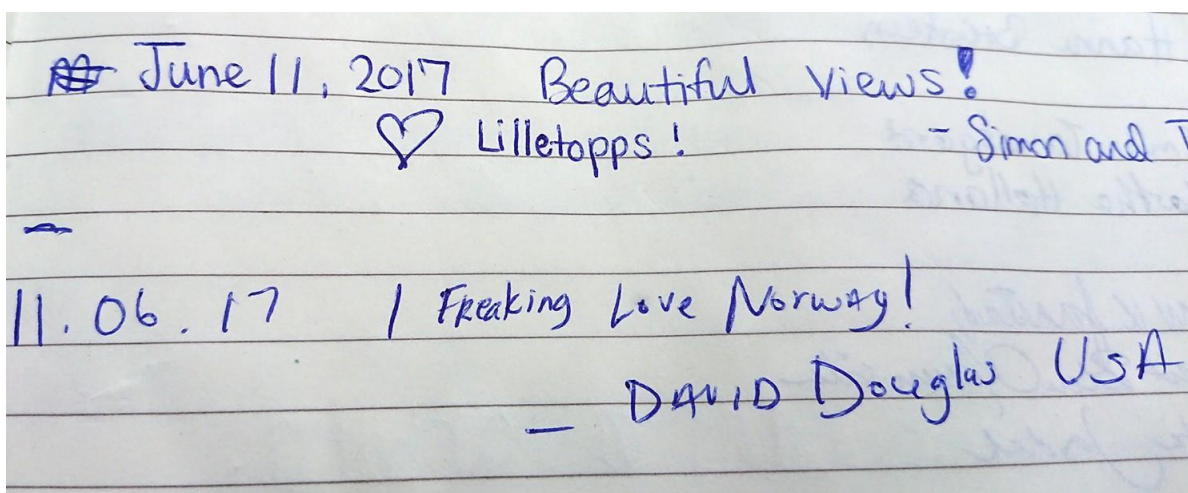 June 11, 2017 Beautiful Views!
♡ Lilletopps! - Simon and
11.06.17 I Freaking Love Norway!
— DAVID Douglas USA